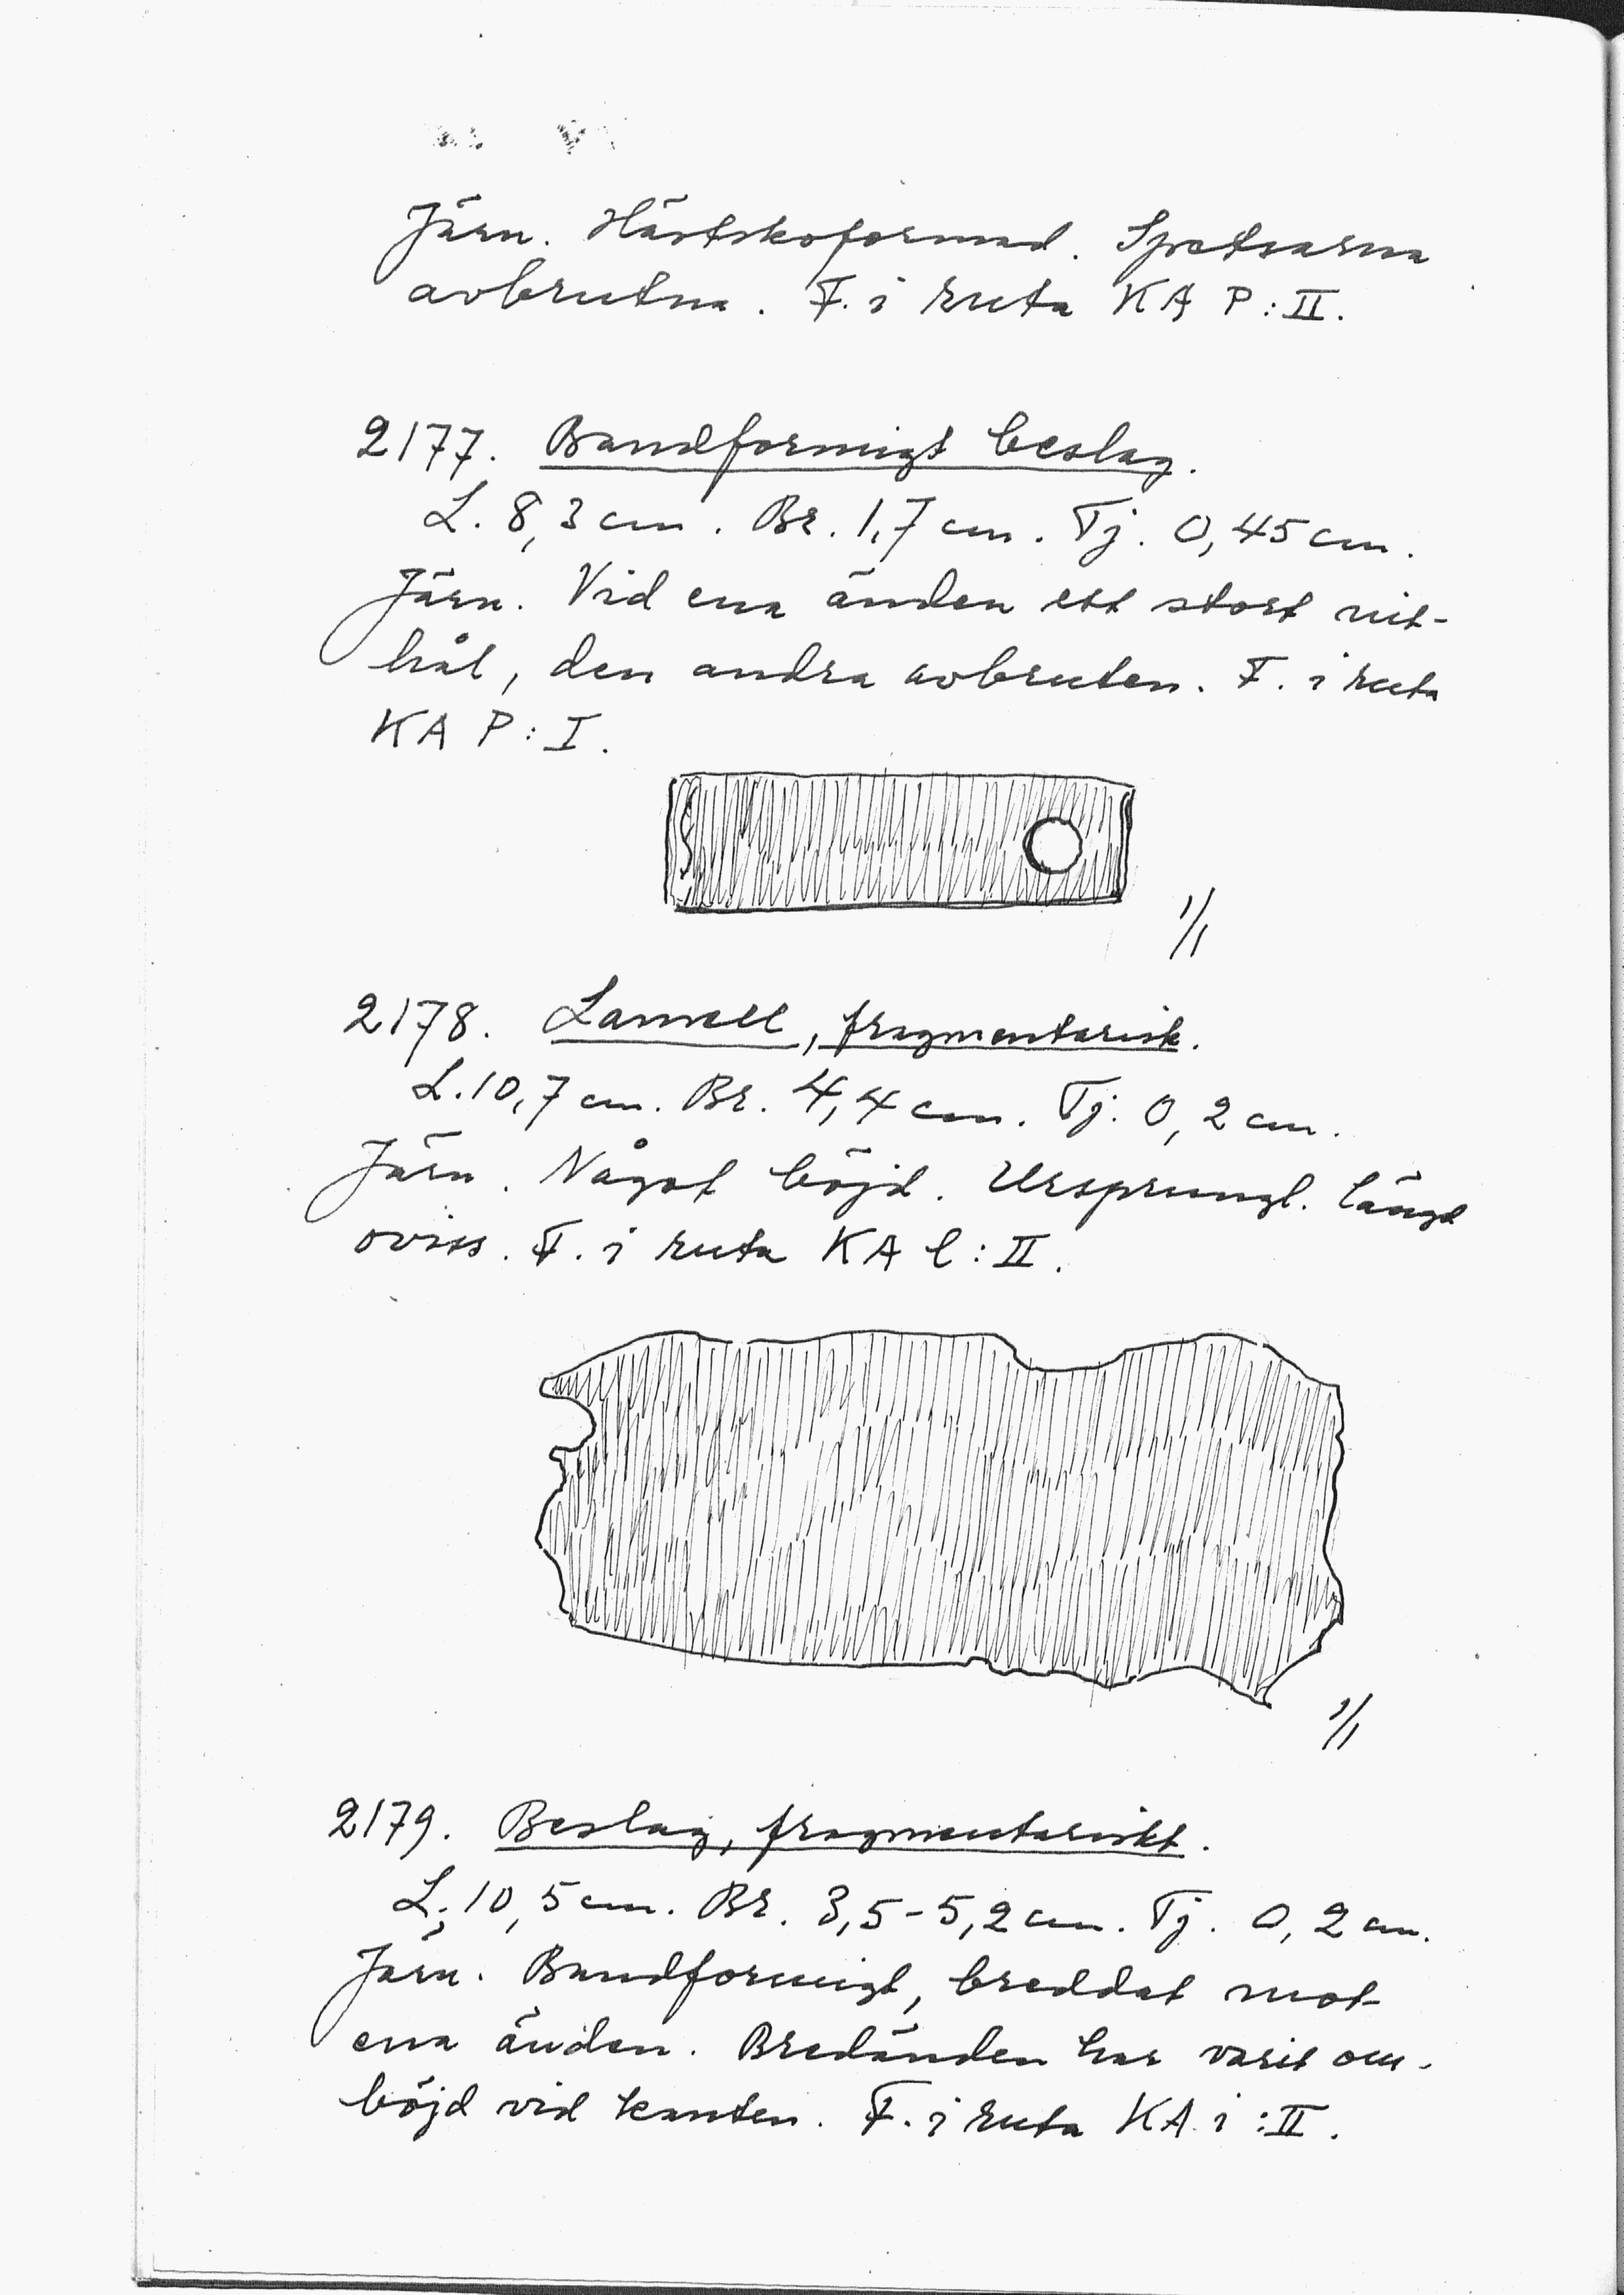 Järn. Hästskoformad. Spetsarna
avbrutna. F. i ruta KA P:II.
2177. Bandformigt beslag.
L. 8,3 cm. Br. 1,7 cm. Tj. 0,45 cm.
Järn. Vid ena änden ett stort nit-
hål, den andra avbruten. F. i ruta
KA P:I.
1/1
2178. Lamell, fragmentarisk.
L. 10,7 cm. Br. 4,4 cm. Tj. 0,2 cm.
Järn. Något böjd. Ursprungl. längd
oviss. F. i ruta KA l:II.
1/1
2179. Beslag, fragmentariskt.
L. 10,5 cm. Br. 3,5-5,2 cm. Tj. 0,2 cm.
Järn. Bandformigt, breddat mot
ena änden. Bredänden har varit om-
böjd vid kanten. F. i ruta KA i:II.